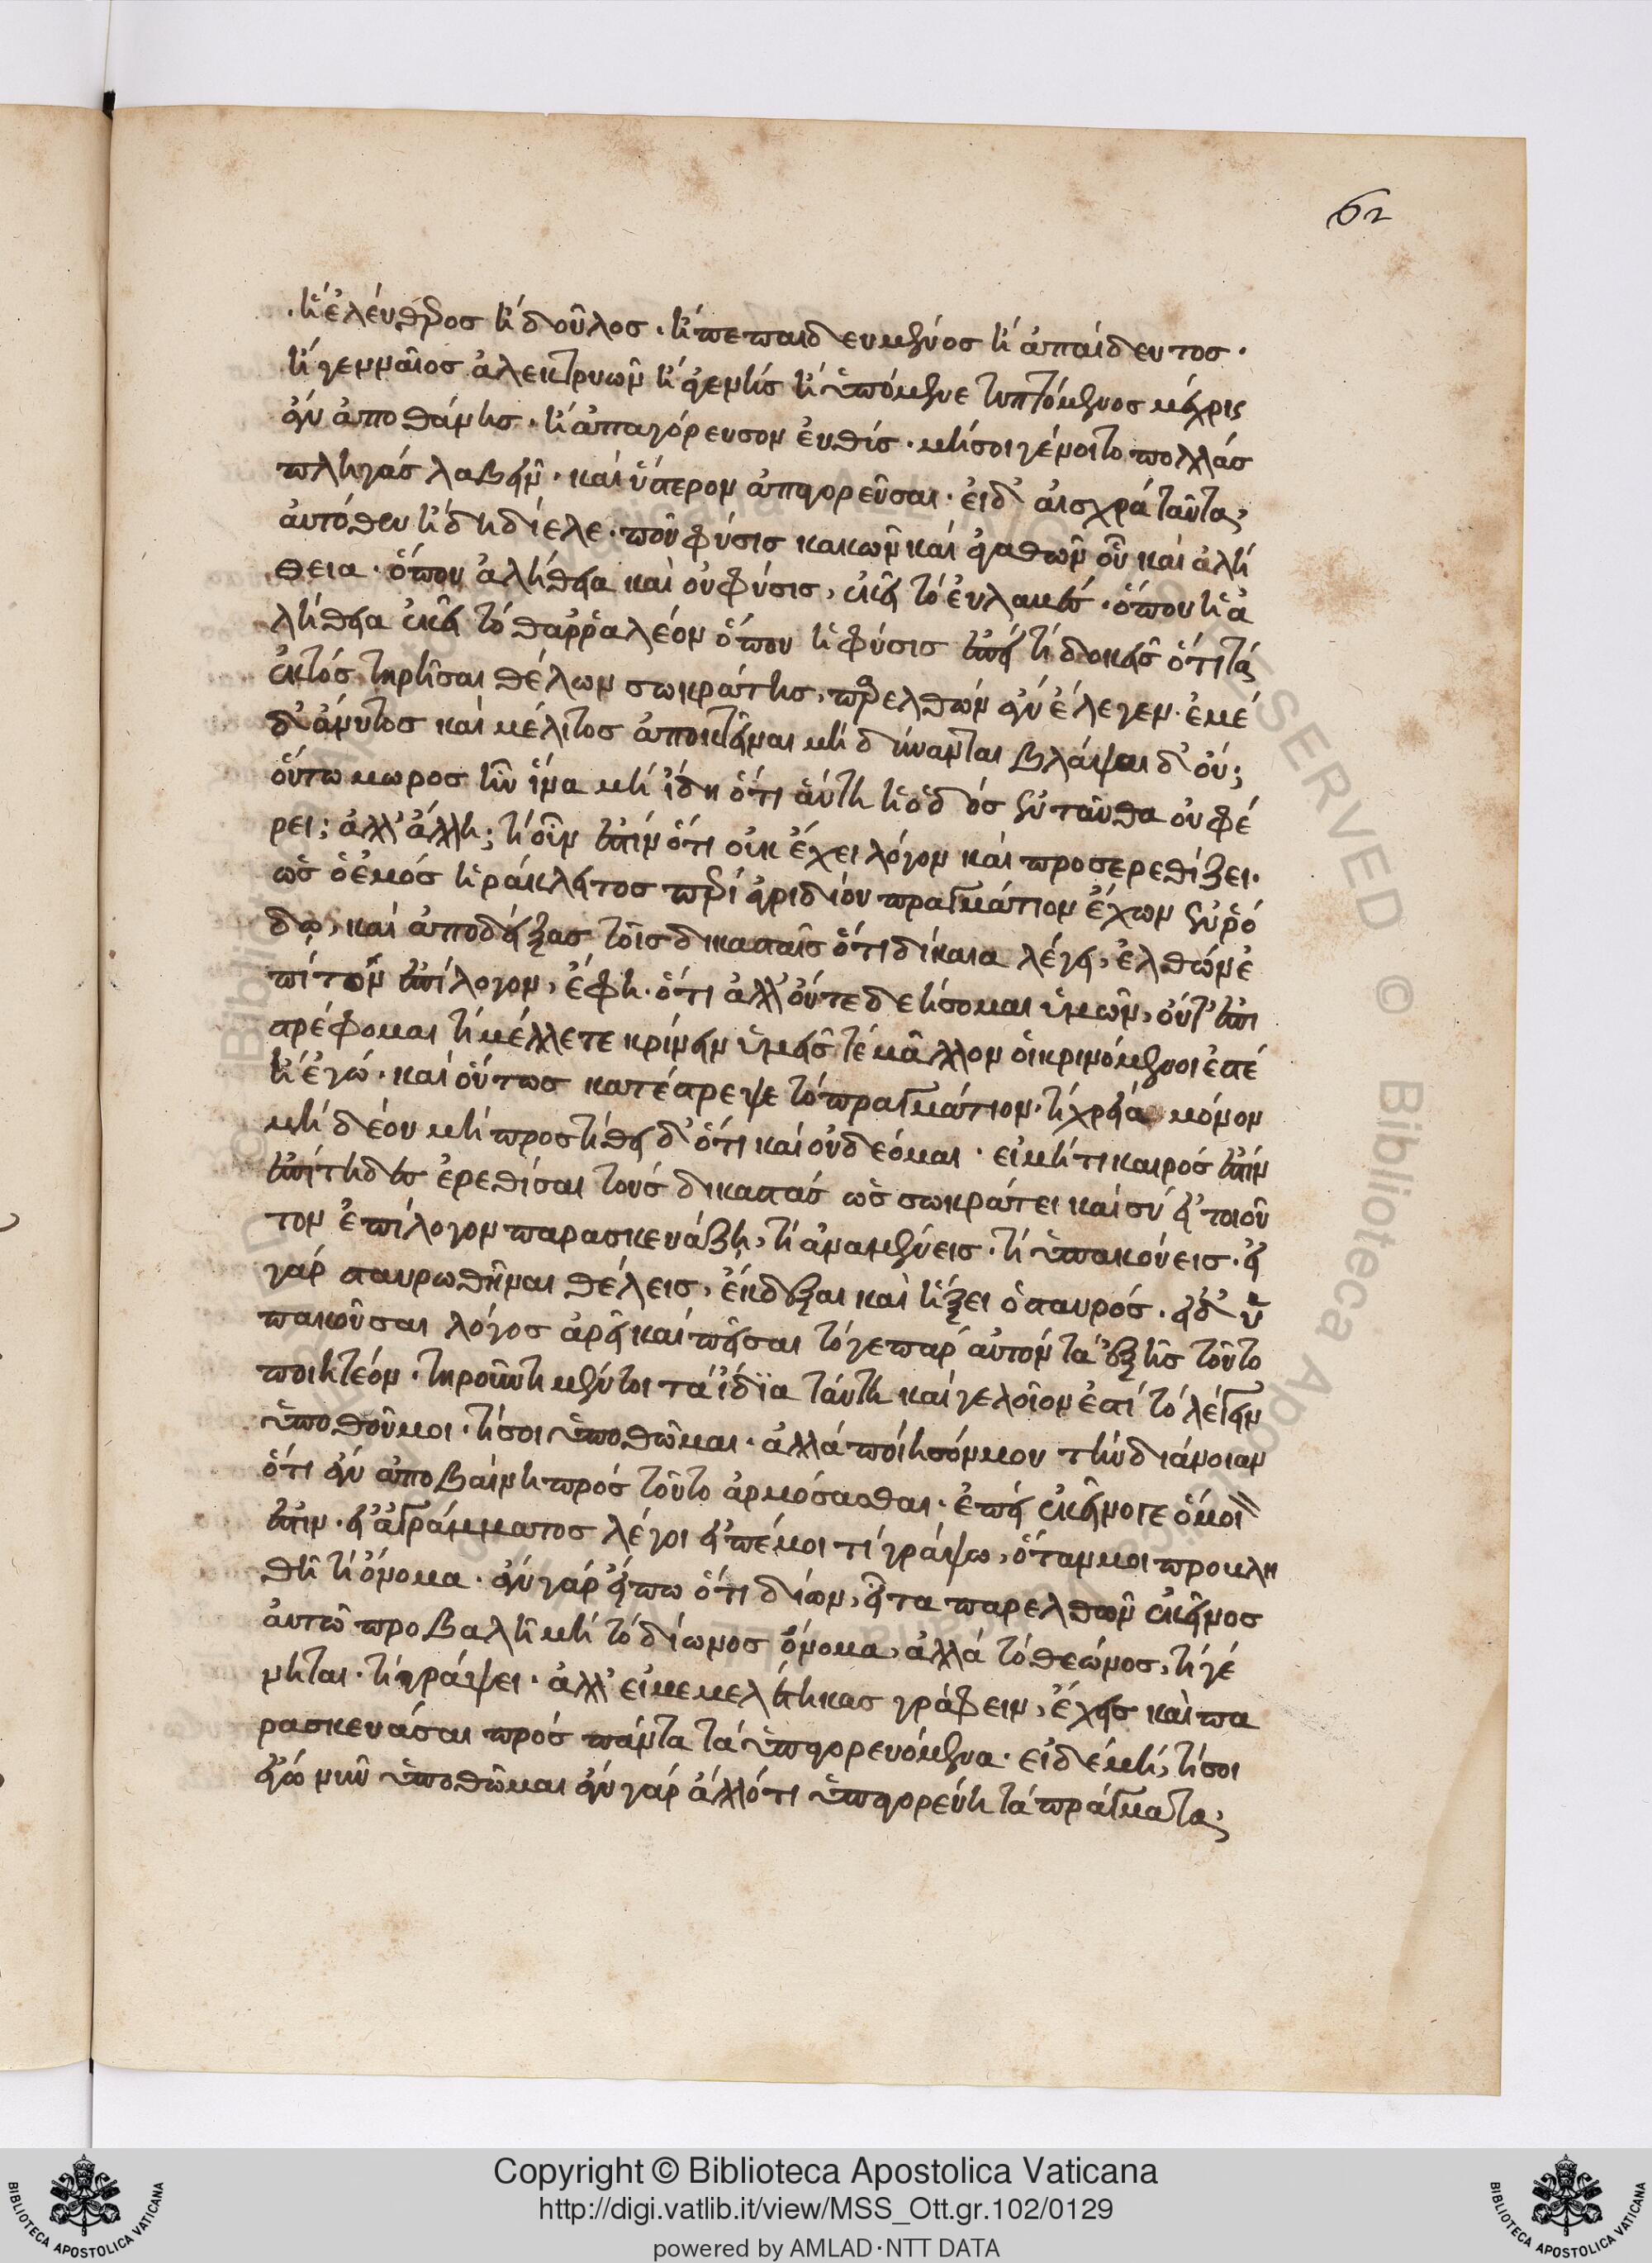 62
.ἢ ἐλεύθερος ἢ δοῦλος. ἢ πεπαιδευμένος ἢ ἀπαίδευτος.
ἢ γενναῖος ἀλεκτρυὼν ἢ ἀγεννὴς ἢ ὑπόμενε τυπτόμενος μέχρις
ἂν ἀποθάνῃς. ἢ ἀπαγόρευσον εὐθύς. μή σοι γένοιτο πολλὰς
πληγὰς λαβεῖν. καὶ ὕστερον ἀπαγορεῦσαι. εἰ δ' αἰσχρὰ ταῦτα,
αὐτόθεν ἤδη δίελε. ποῦ φύσις κακῶν καὶ ἀγαθῶν οὗ καὶ ἀλή
θεια. ὅπου ἀλήθεια καὶ οὐ φύσις, ἐκεῖ τὸ εὐλαβές. ὅπου ἡ ἀ
λήθεια ἐκεῖ τὸ θαρραλέον ὅπου ἡ φύσις ἐπεί τι δοκεῖς ὅτι τὰ
ἐκτὸς τηρῆσαι θέλων σωκράτης, παρελθὼν ἂν ἔλεγεν. ἐμὲ
δ' ἄνυτος καὶ μέλιτος ἀποκτεῖναι μὴ δύνανται βλάψαι δ' οὔ;
οὕτω μωρὸς ἦν ἵνα μὴ ἴδῃ ὅτι αὕτη ἡ ὁδὸς ἐνταῦθα οὐ φέ
ρει; ἀλλ' ἄλλη; τί οὖν ἐστιν ὅτι οὐκ ἔχει λόγον καὶ προσερεθίζει.
ὡς ὁ ἐμὸς ἡράκλειτος περὶ ἀγριδίου πραγμάτιον ἔχων ἐν ῥό
δῳ, καὶ ἀποδείξας τοῖς δικασταῖς ὅτι δίκαια λέγει, ἐλθὼν ἐ
πὶ τὸν ἐπίλογον, ἔφη. ὅτι ἀλλ' οὔτε δεήσομαι ὑμῶν, οὔτ' ἐπι
στρέφομαι τί μέλλετε κρίνειν ὑμεῖς τε μᾶλλον οἱ κρινόμενοι ἐστέ
ἢ ἐγώ. καὶ οὕτως κατέστρεψε τὸ πραγμάτιον. τί χρεία μόνον
μὴ δέου μὴ προστίθει δ' ὅτι καὶ οὐ δέομαι. εἰ μή τι καιρός ἐστιν
ἐπίτηδες ἐρεθίσαι τοὺς δικαστὰς ὡς σωκράτει καὶ σὺ εἰ τοιοῦ
τον ἐπίλογον παρασκευάζῃ, τί ἀναμένεις. τί ὑπακούεις. εἰ
γὰρ σταυρωθῆναι θέλεις, ἔκδεξαι καὶ ἥξει ὁ σταυρός. εἰ δ' ὑ
πακοῦσαι λόγος αἱρεῖ καὶ πεῖσαι τό γε παρ' αὐτὸν τὰ ἑξῆς τοῦτο
ποιητέον. τηροῦντι μέντοι τὰ ἴδϊα ταύτῃ καὶ γελοῖόν ἐστι τὸ λέγειν
ὑποθοῦ μοι. τί σοι ὑποθῶμαι. ἀλλὰ ποίησόν μου τὴν διάνοιαν
ὅτι ἂν ἀποβαίνῃ πρὸς τοῦτο ἁρμόσασθαι. ἐπεὶ ἐκεῖνό γε ὅμοι
ἐστιν. εἰ ἀγράμματος λέγοι εἰπέ μοι τί γράψω, ὅταν μοι προκλη
θῇ τι ὄνομα. ἂν γὰρ εἴπω ὅτι δίων, εἶτα παρελθὼν ἐκεῖνος
αὐτῷ προβάλῃ μὴ τὸ δίωνος ὄνομα, ἀλλὰ τὸ θέωνος, τί γέ
νηται. τί γράψει. ἀλλ' εἰ μεμελέτηκας γράφειν, ἔχεις καὶ πα
ρασκευάσαι πρὸς πάντα τὰ ὑπαγορευόμενα. εἰ δὲ μή, τί σοι
ἐγὼ νῦν ὑποθῶμαι ἂν γὰρ ἄλλό τι ὑπαγορεύῃ τὰ πράγματα,
Copyright © Biblioteca Apostolica Vaticana
http://digi.vatlib.it/view/MSS_Ott.gr.102/0129
powered by AMLAD·NTT DATA